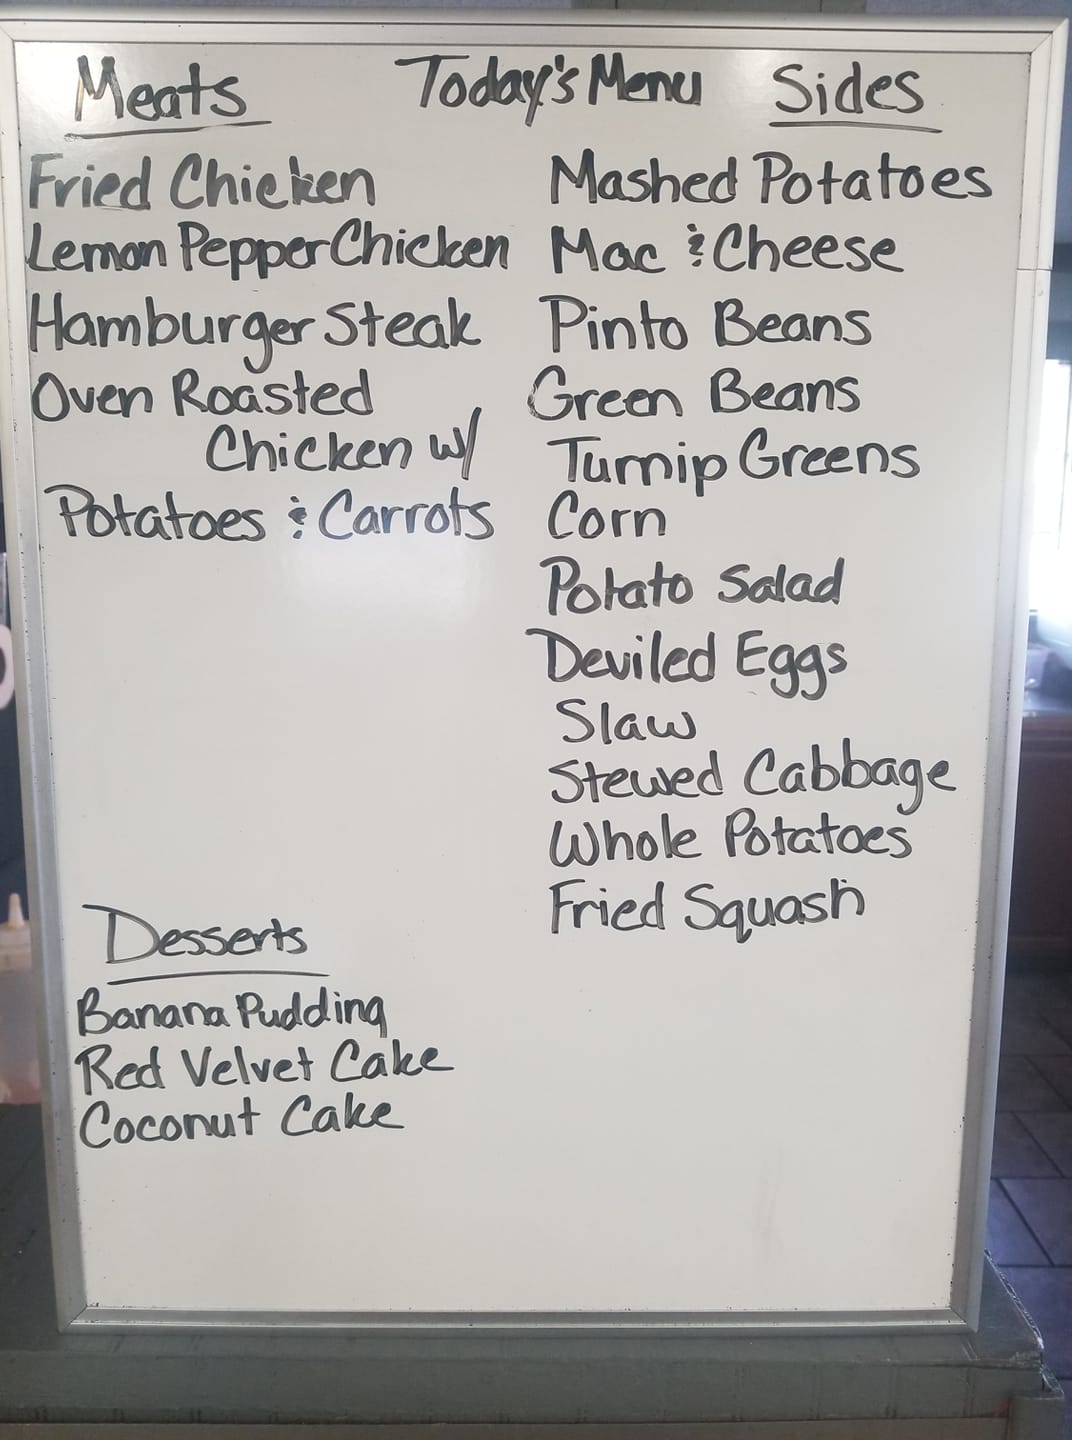 Today's Menu
Meats
Fried Chicken
Lemon Pepper Chicken
Hamburger Steak
Oven Roasted
Chicken w/
Potatoes & Carrots
Desserts
Banana Pudding
Red Velvet Cake
Coconut Cake
Sides
Mashed Potatoes
Mac & Cheese
Pinto Beans
Green Beans
Turnip Greens
Corn
Potato Salad
Deviled Eggs
Slaw
Stewed Cabbage
Whole Potatoes
Fried Squash